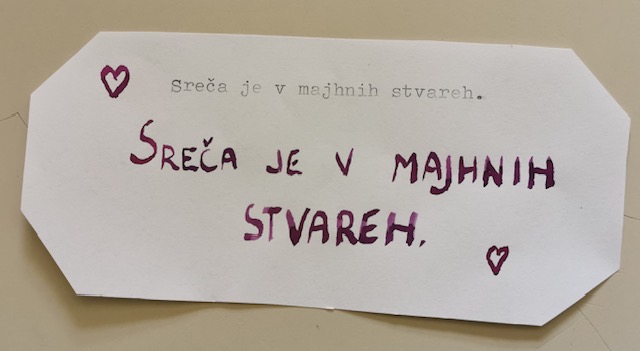 Sreča je v majhnih stvareh.
SREČA JE V MAJHNIH
STVAREH.